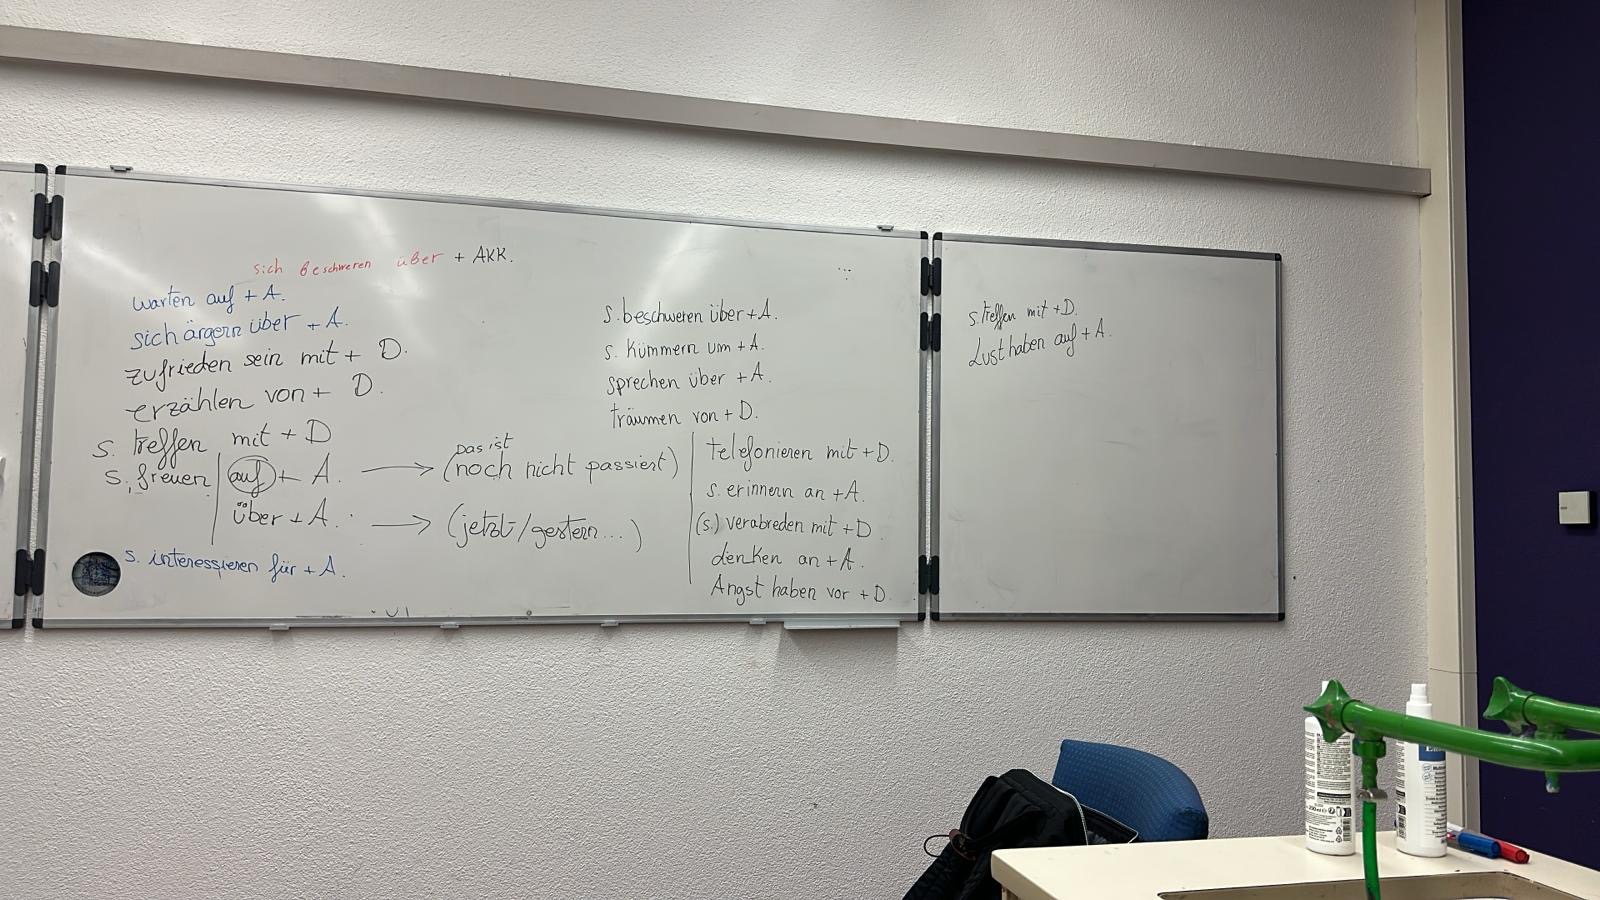 sich beschweren über + AKK.
warten auf + A.
sich ärgern über + A.
zufrieden sein mit + D.
erzählen von + D.
s. treffen mit + D
s. freuen auf + A. → (Das ist noch nicht passiert)
über + A. → (jetzt/gestern...)
s. interessieren für + A.
...
s. beschweren über + A.
s. kümmern um + A.
sprechen über + A.
träumen von + D.
telefonieren mit + D.
s. erinnern an + A.
(s.) verabreden mit + D
denken an + A.
Angst haben vor + D.
s. treffen mit + D.
Lust haben auf + A.